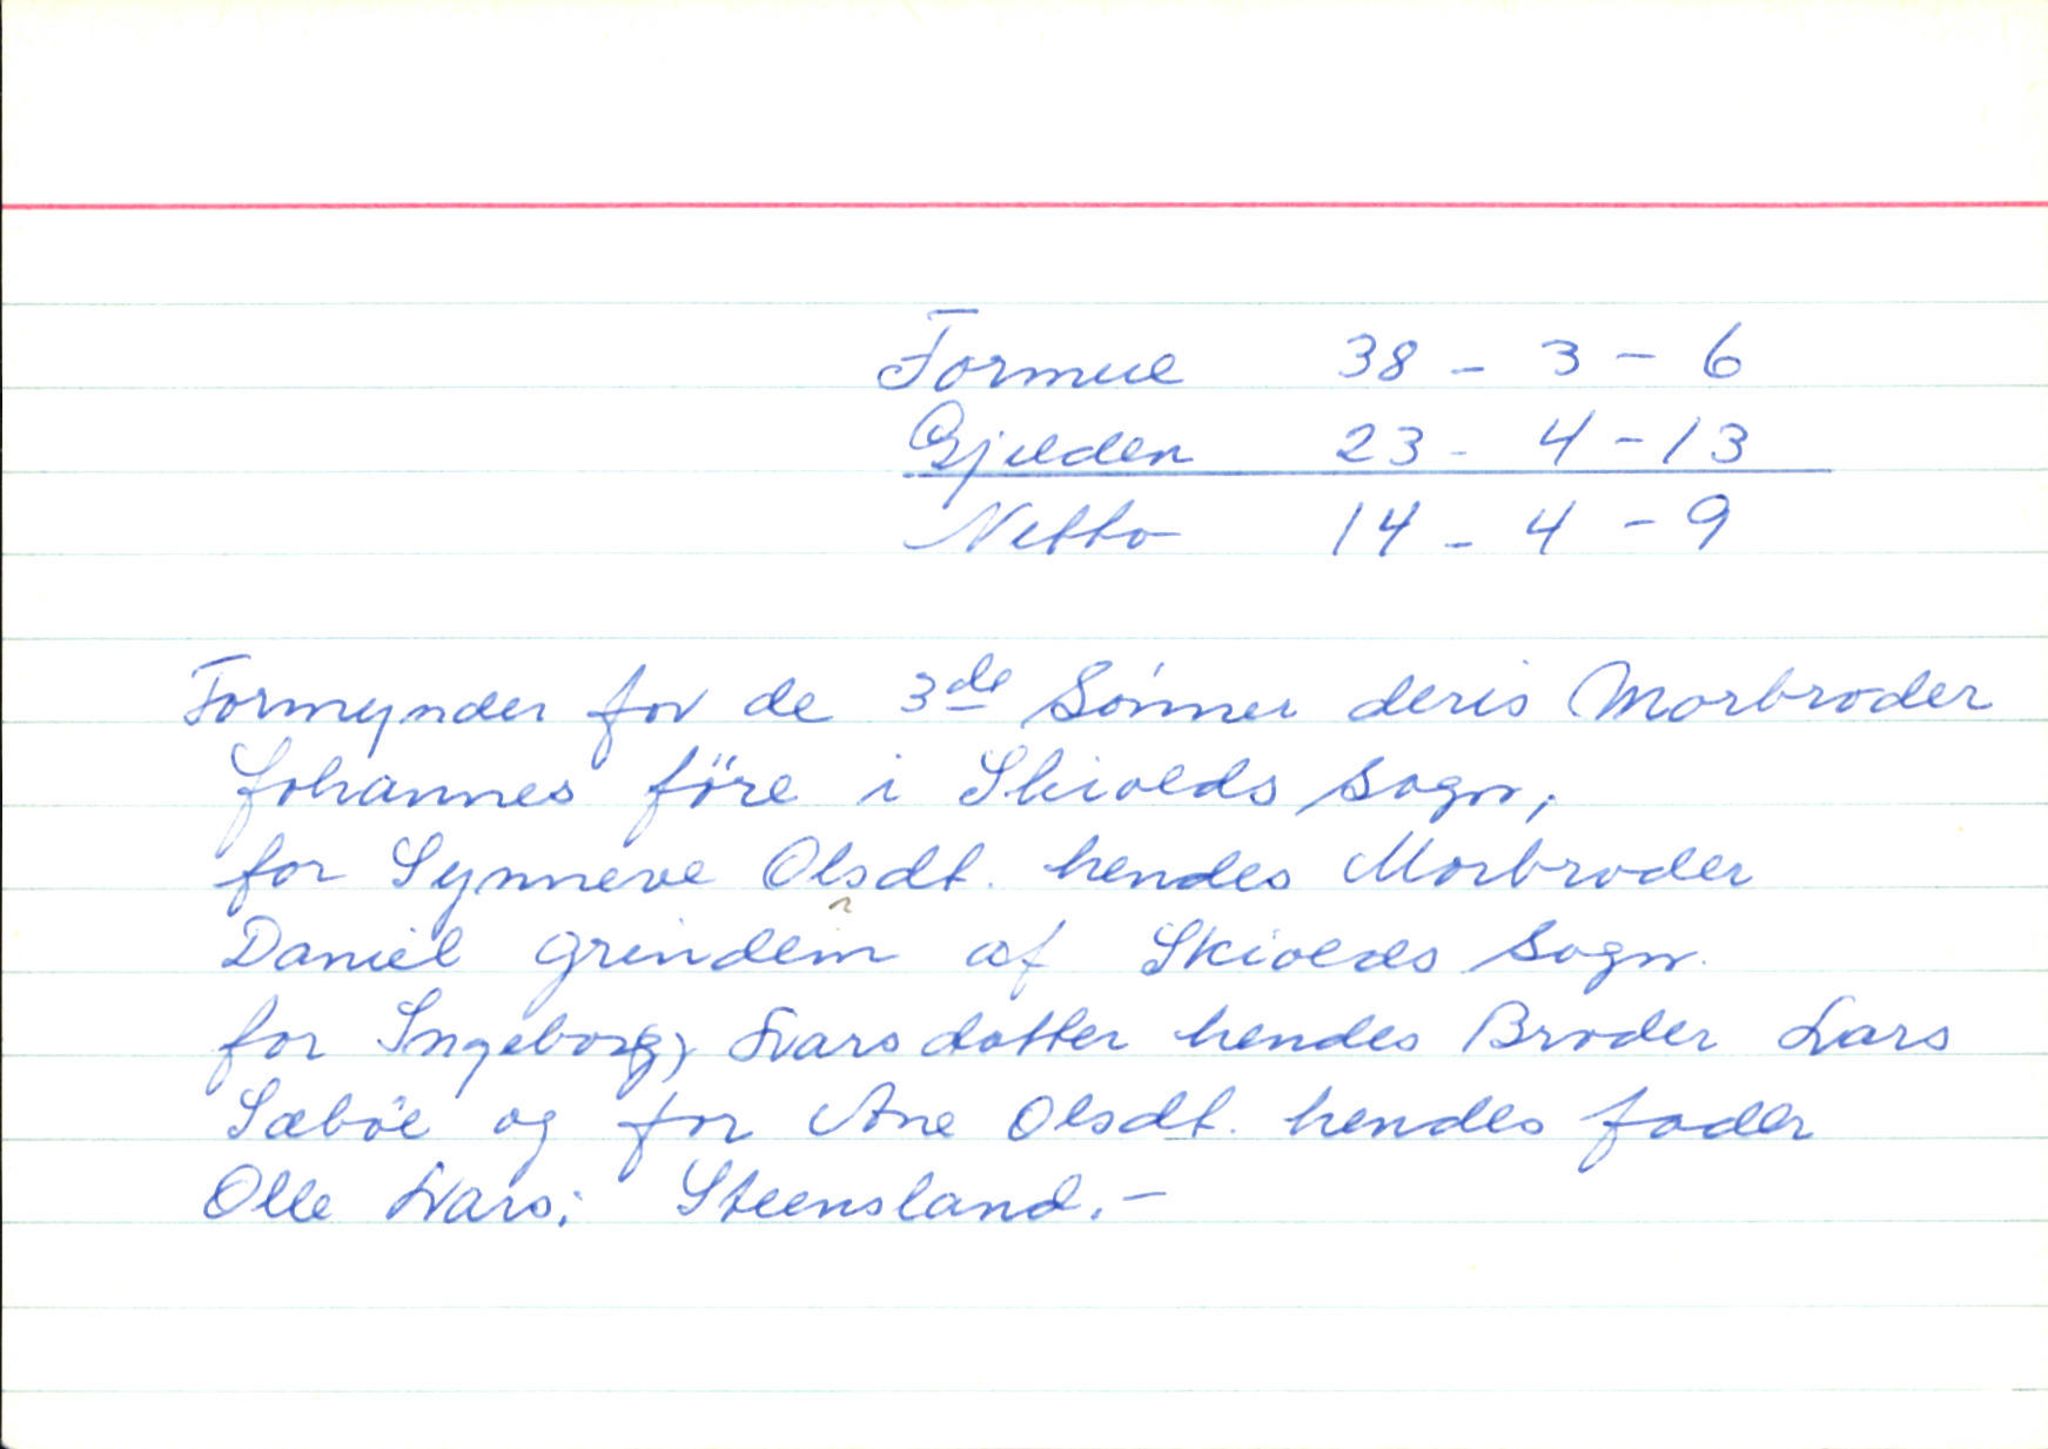 Formue 38 - 3 - 6
Gjelden 23 - 4 - 13
Netto 14 - 4 - 9
Formynder for de 3de Sönner deris Morbroder
Johannes före i Skiolds Sogn,
for Synneve Olsdt. hendes Morbroder
Daniel Grindem af Skiolds Sogn.
for Ingeborg, Ivarsdatter hendes Broder Lars
Sæböe og for Ane Olsdt. hendes fader
Olle Ivars: Steensland. -